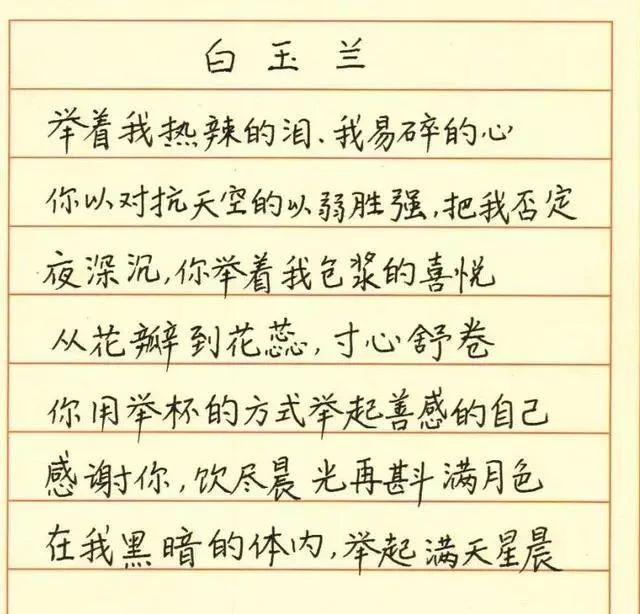 白玉兰
举着我热辣的泪、我易碎的心
你以对抗天空的以弱胜强,把我否定
夜深沉,你举着我包浆的喜悦
从花瓣到花蕊,寸心舒卷
你用举杯的方式举起善感的自己
感谢你,饮尽晨光再斟满月色
在我黑暗的体内,举起满天星晨